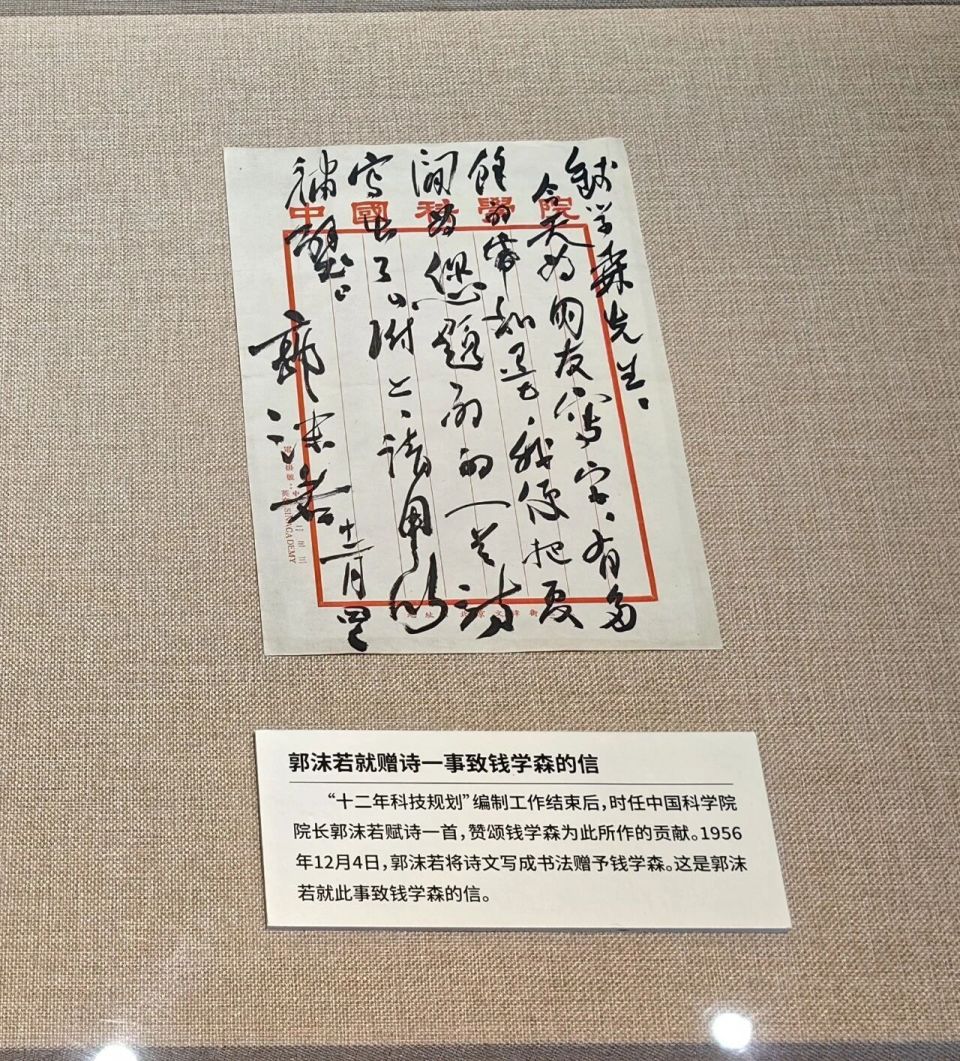 中國科學院
錢学森先生。
今天为朋友寫字、有多
餘的帋和墨，我便把夏
间为您题的一首诗
写出了。附上、请用以
補壁。
郭沫若
十二月四日
SINACADEMY
郭沫若就赠诗一事致钱学森的信
“十二年科技规划”编制工作结束后，时任中国科学院
院长郭沫若赋诗一首，赞颂钱学森为此所作的贡献。1956
年12月4日，郭沫若将诗文写成书法赠予钱学森。这是郭沫
若就此事致钱学森的信。